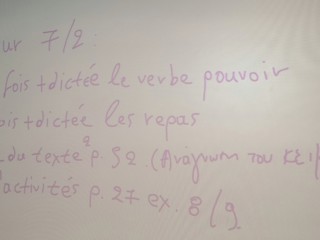 ur 7/2:
fois + dictée le verbe pouvoir
ois + dictée les repas
du texte p. 52. (Ανάγνωση του κει
activités p. 27 ex. 8/9